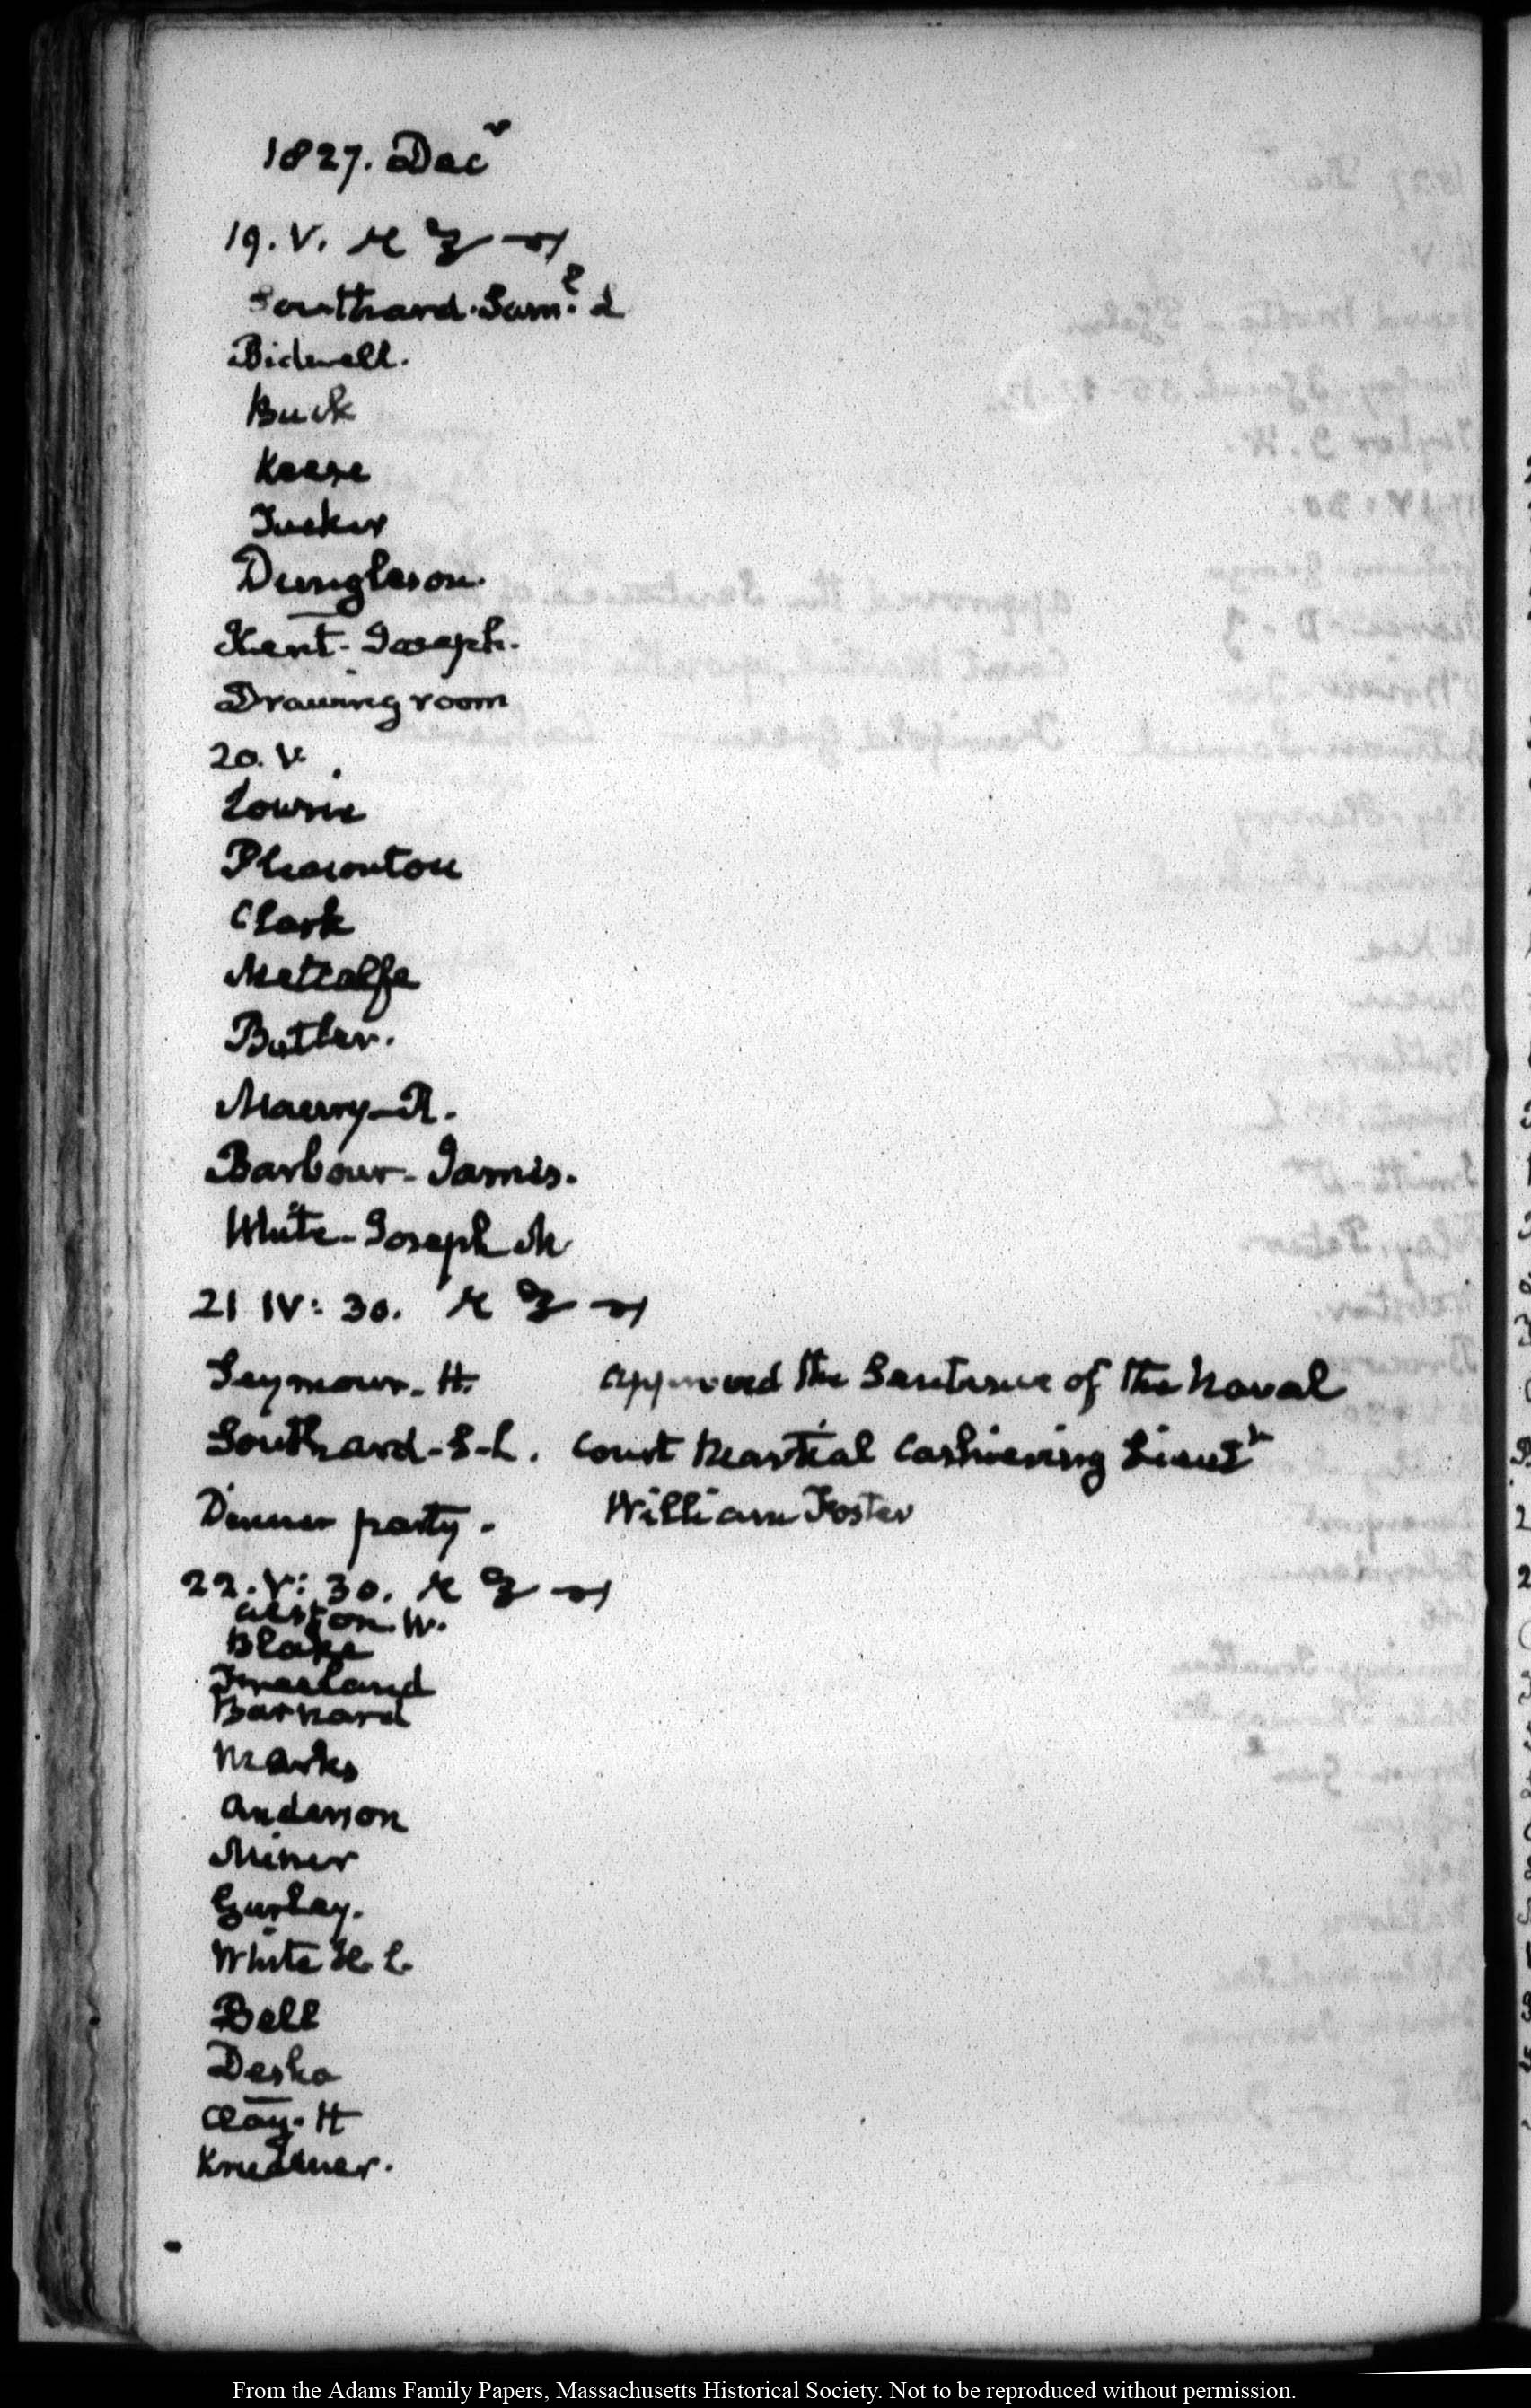 1827. Decr
19. V.
Southard. Saml. L
Bidwell.
Buck
Keese
Tucker
Dungleson.
Kent- Joseph.
Drawing room
20. V.
Lowrie
Pleasonton
Clark
Metcalfe
Butler.
Maury- R.
Barbour- James.
White- Joseph M
21 IV: 30.
Seymour. H. approved the Sentence of the Naval
Southard- S-L. Court Martial Cashiering Lieutt
Dinner party. William Foster
22. V: 30.
Alston. W.
Blake
Freeland
Barnard
Marks
Anderson
Miner
Gurley.
White H. L.
Bell
Desha
Clay. H
Krudener.
From the Adams Family Papers, Massachusetts Historical Society. Not to be reproduced without permission.